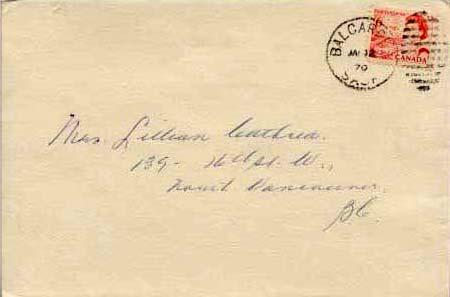 BALCARRES
JAN 12
70
SASK
CANADA
Mrs. Lillian Cathrea.
139 - 16th St. W.,
North Vancouver,
B.C.